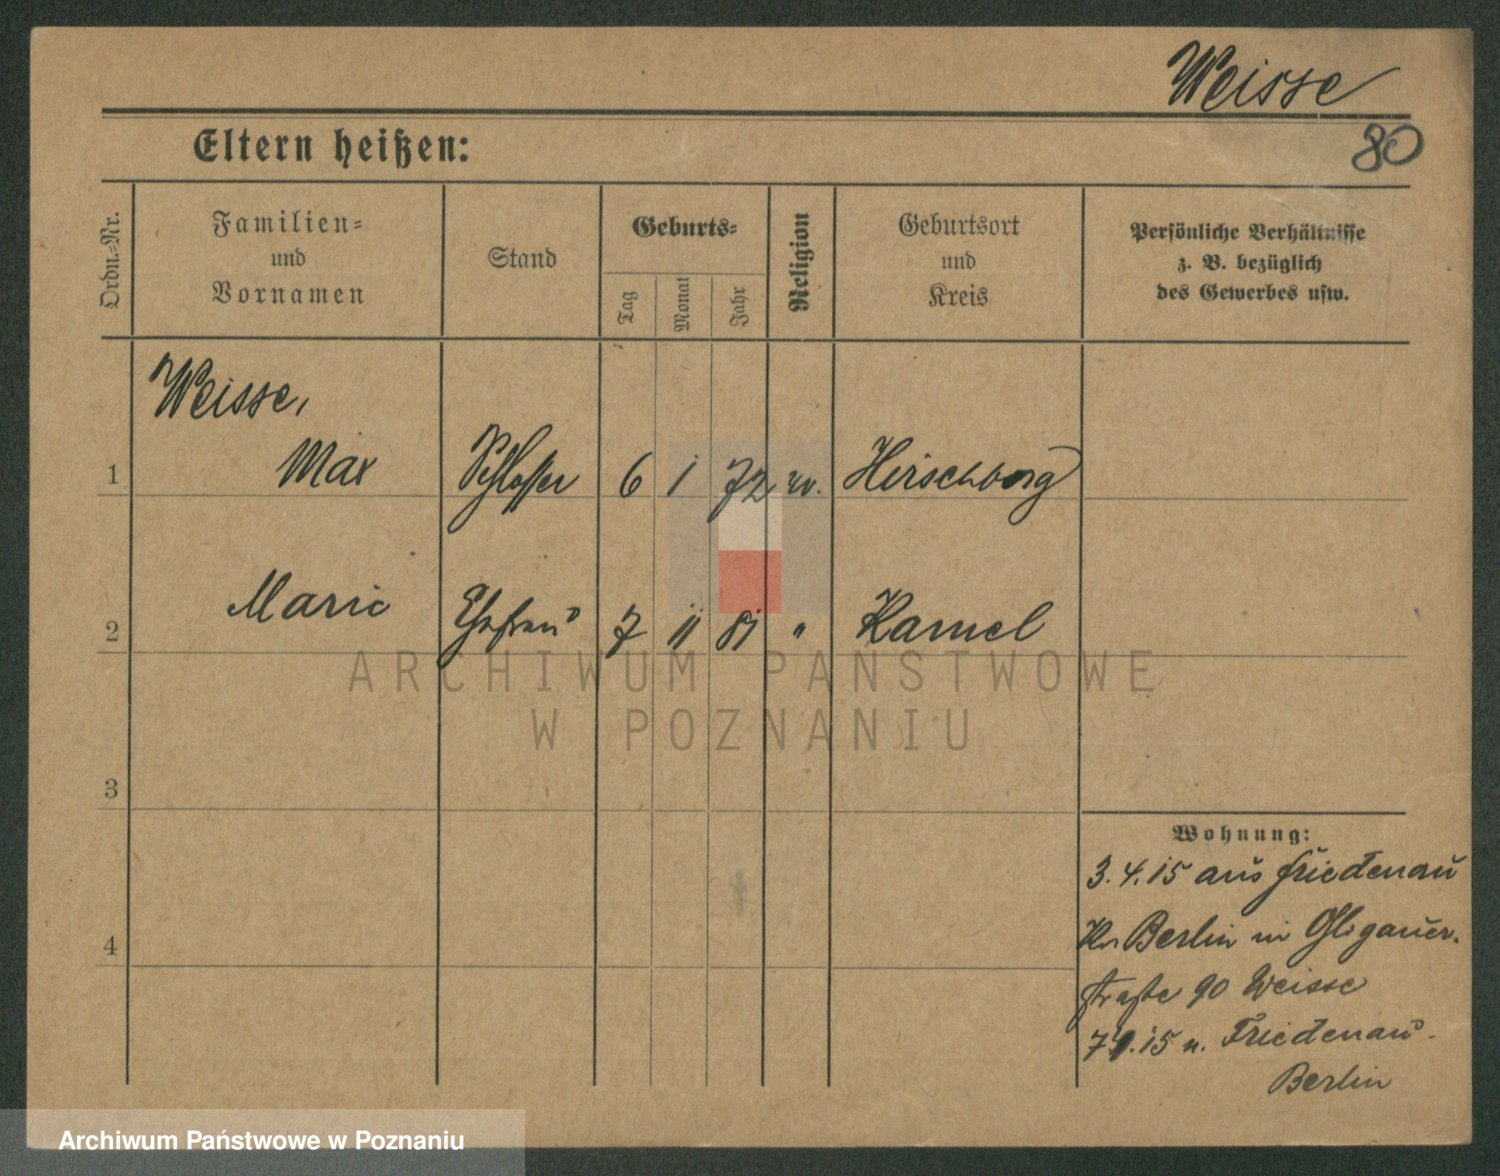 Weisse
80
Eltern heißen:
Ordn.-Nr.
Familien-
und
Vornamen
Stand
Geburts-
Tag
Monat
Jahr
Religion
Geburtsort
und
Kreis
Persönliche Verhältnisse
z. B. bezüglich
des Gewerbes usw.
Weisse,
1 Max Schlosser 6 1 72 ev. Hirschberg
2 Marie Ehefrau 7 11 81 " Kamel
ARCHIWUM PAŃSTWOWE
W POZNANIU
3
Wohnung:
3.4.15 aus Friedenau
Berlin in Glogauer-
4
straße 90 Weisse
15 n. Friedenau-
Berlin
Archiwum Państwowe w Poznaniu